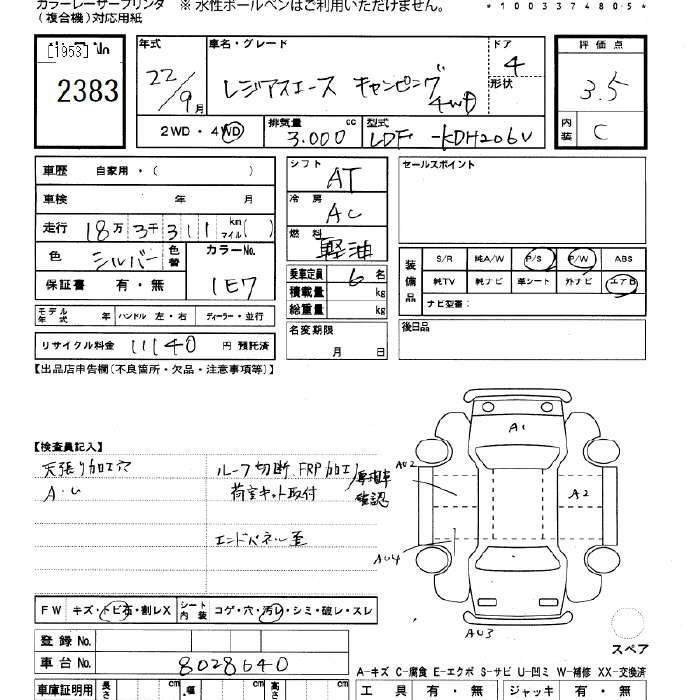 カラーレーザープリンタ ※ 水性ボールペンはご利用いただけません。
(複合機)対応用紙
*1003374805*
[1953] No
2383
年式 22/9月
車名・グレード レジアスエース キャンピング 4WD
ドア 4
形状
評価点 3.5
内装 C
2WD・4WD
排気量 3.000 cc
型式 LDF-KDH206V
車歴 自家用・( )
車検 年 月
走行 18万3千311 km マイル( )
色 シルバー 色替
カラーNo. 1E7
保証書 有・無
モデル年式 年 ハンドル 左・右 ディーラー・並行
リサイクル料金 11140 円 預託済
シフト AT
冷房 AC
燃料 軽油
乗車定員 6 名
積載量 kg
総重量 kg
名変期限
月 日
セールスポイント
装備品 S/R 純A/W P/S P/W ABS
純TV 純ナビ 革シート 外ナビ エアB
ナビ型番:
後日品
【出品店申告欄(不良箇所・欠品・注意事項等)】
【検査員記入】
天張り加工穴
A・U
ルーフ切断 FRP加工
荷室キット取付
専横車確認
エンドパネル歪
A1
AU2
A2
AU4
AU3
スペア
FW キズ・トビ石・割レX シート内装 コゲ・穴・汚レ・シミ・破レ・スレ
登録No.
車台No. 8028640
A-キズ C-腐食 E-エクボ S-サビ U-凹ミ W-補修 XX-交換済
車庫証明用 長さ cm ・幅 cm 高さ cm
工具 有・無 ジャッキ 有・無